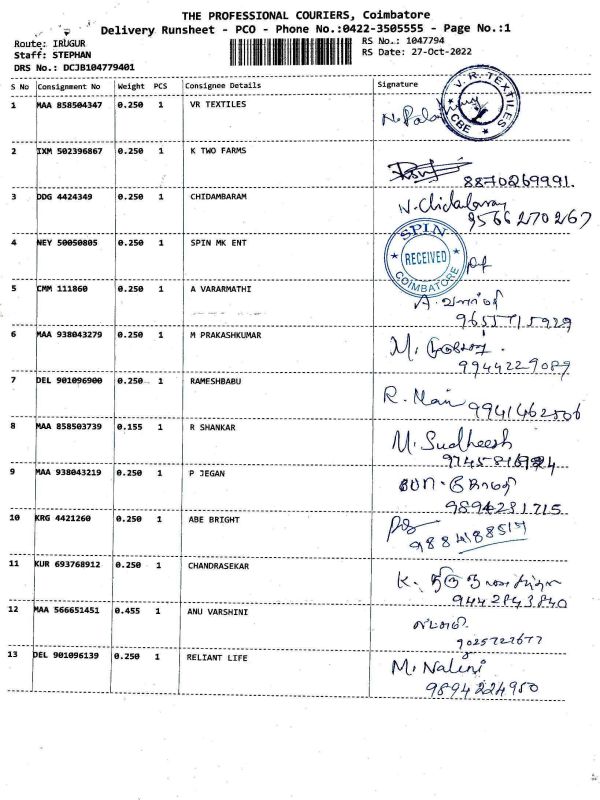 THE PROFESSIONAL COURIERS, Coimbatore
Delivery Runsheet - PCO - Phone No.:0422-3505555 - Page No.:1
Route: IRUGUR RS No.: 1047794
Staff: STEPHAN RS Date: 27-Oct-2022
DRS No.: DCJB104779401
S No Consignment No Weight PCS Consignee Details Signature
1 MAA 858504347 0.250 1 VR TEXTILES V. R. TEXTILES CBE
2 IXM 502396867 0.250 1 K TWO FARMS
8870269991.
3 DDG 4424349 0.250 1 CHIDAMBARAM
9566270267
4 NEY 50050805 0.250 1 SPIN MK ENT SPIN RECEIVED COIMBATORE
5 CMM 111860 0.250 1 A VARARMATHI
9655715929
6 MAA 938043279 0.250 1 M PRAKASHKUMAR
9944229089
7 DEL 901096900 0.250 1 RAMESHBABU R. Mani
9941462506
8 MAA 858503739 0.155 1 R SHANKAR M. Sudheesh
9 MAA 938043219 0.250 1 P JEGAN
9894231715
10 KRG 4421260 0.250 1 ABE BRIGHT
11 KUR 693768912 0.250 1 CHANDRASEKAR
9442843840
12 MAA 566651451 0.455 1 ANU VARSHINI
9025727677
13 DEL 901096139 0.250 1 RELIANT LIFE M. Nalini
9894224950